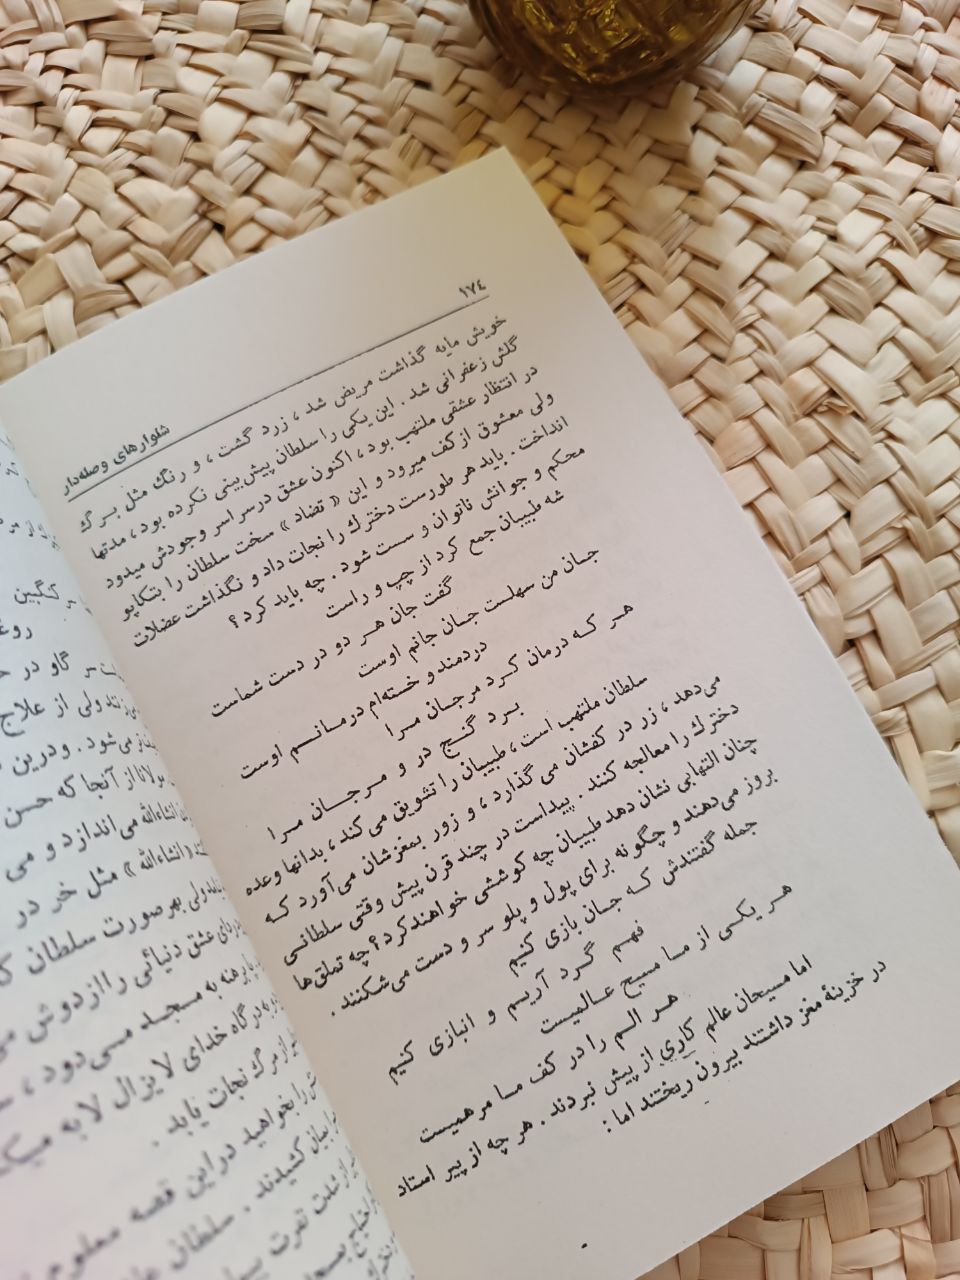 ۱۷٤
شلوارهای وصله‌دار
خویش مایه گذاشت مریض شد ، زرد گشت ، و رنگ مثل برگ
گلش زعفرانی شد . این یکی را سلطان پیش‌بینی نکرده بود ، مدتها
در انتظار عشقی ملتهب بود ، اکنون عشق در سراسر وجودش میدود
ولی معشوق از کف میرود و این « تضاد » سخت سلطان را بتکاپو
انداخت . باید هر طورست دخترك را نجات داد و نگذاشت عضلات
محکم و جوانش ناتوان و سست شود . چه باید کرد ؟
شه طبیبان جمع کرد از چپ و راست
گفت جان هر دو در دست شماست
جان من سهلست جان جانم اوست
دردمند و خسته‌ام درمانم اوست
هر که درمان کرد مر جان مرا
برد گنج در و مرجان مرا
سلطان ملتهب است ، طبیبان را تشویق می کند ، بدانها وعده
می‌دهد ، زر در کفشان می گذارد ، و زور بمغزشان می‌آورد که
دخترك را معالجه کنند . پیداست در چند قرن پیش وقتی سلطانی
چنان التهابی نشان دهد طبیبان چه کوششی خواهند کرد ؟ چه تملق‌ها
بروز می‌دهند و چگونه برای پول و پلو سر و دست می‌شکنند .
جمله گفتندش که جان بازی کنیم
فهم گرد آریم و انبازی کنیم
هر یکی از ما مسیح عالمیست
هر الم را در کف ما مرهمیست
اما مسیحان عالم کاری از پیش نبردند . هر چه از پیر استاد
در خزینهٔ مغز داشتند بیرون ریختند اما :
گاو در
ولی از علاج
می‌شود . ودرین
مولانا از آنجا که حسن
انشاءالله می‌اندازد و می
«انشاءالله» مثل خر در
ولی بهرصورت سلطان
عشق دنیائی را از دوش
برهنه به مسجد می‌دود ،
درگاه خدای لایزال لابه
از مرگ نجات یابد .
را بخواهید در این قصه معلوم
کشیدند . سلطان
از شدت